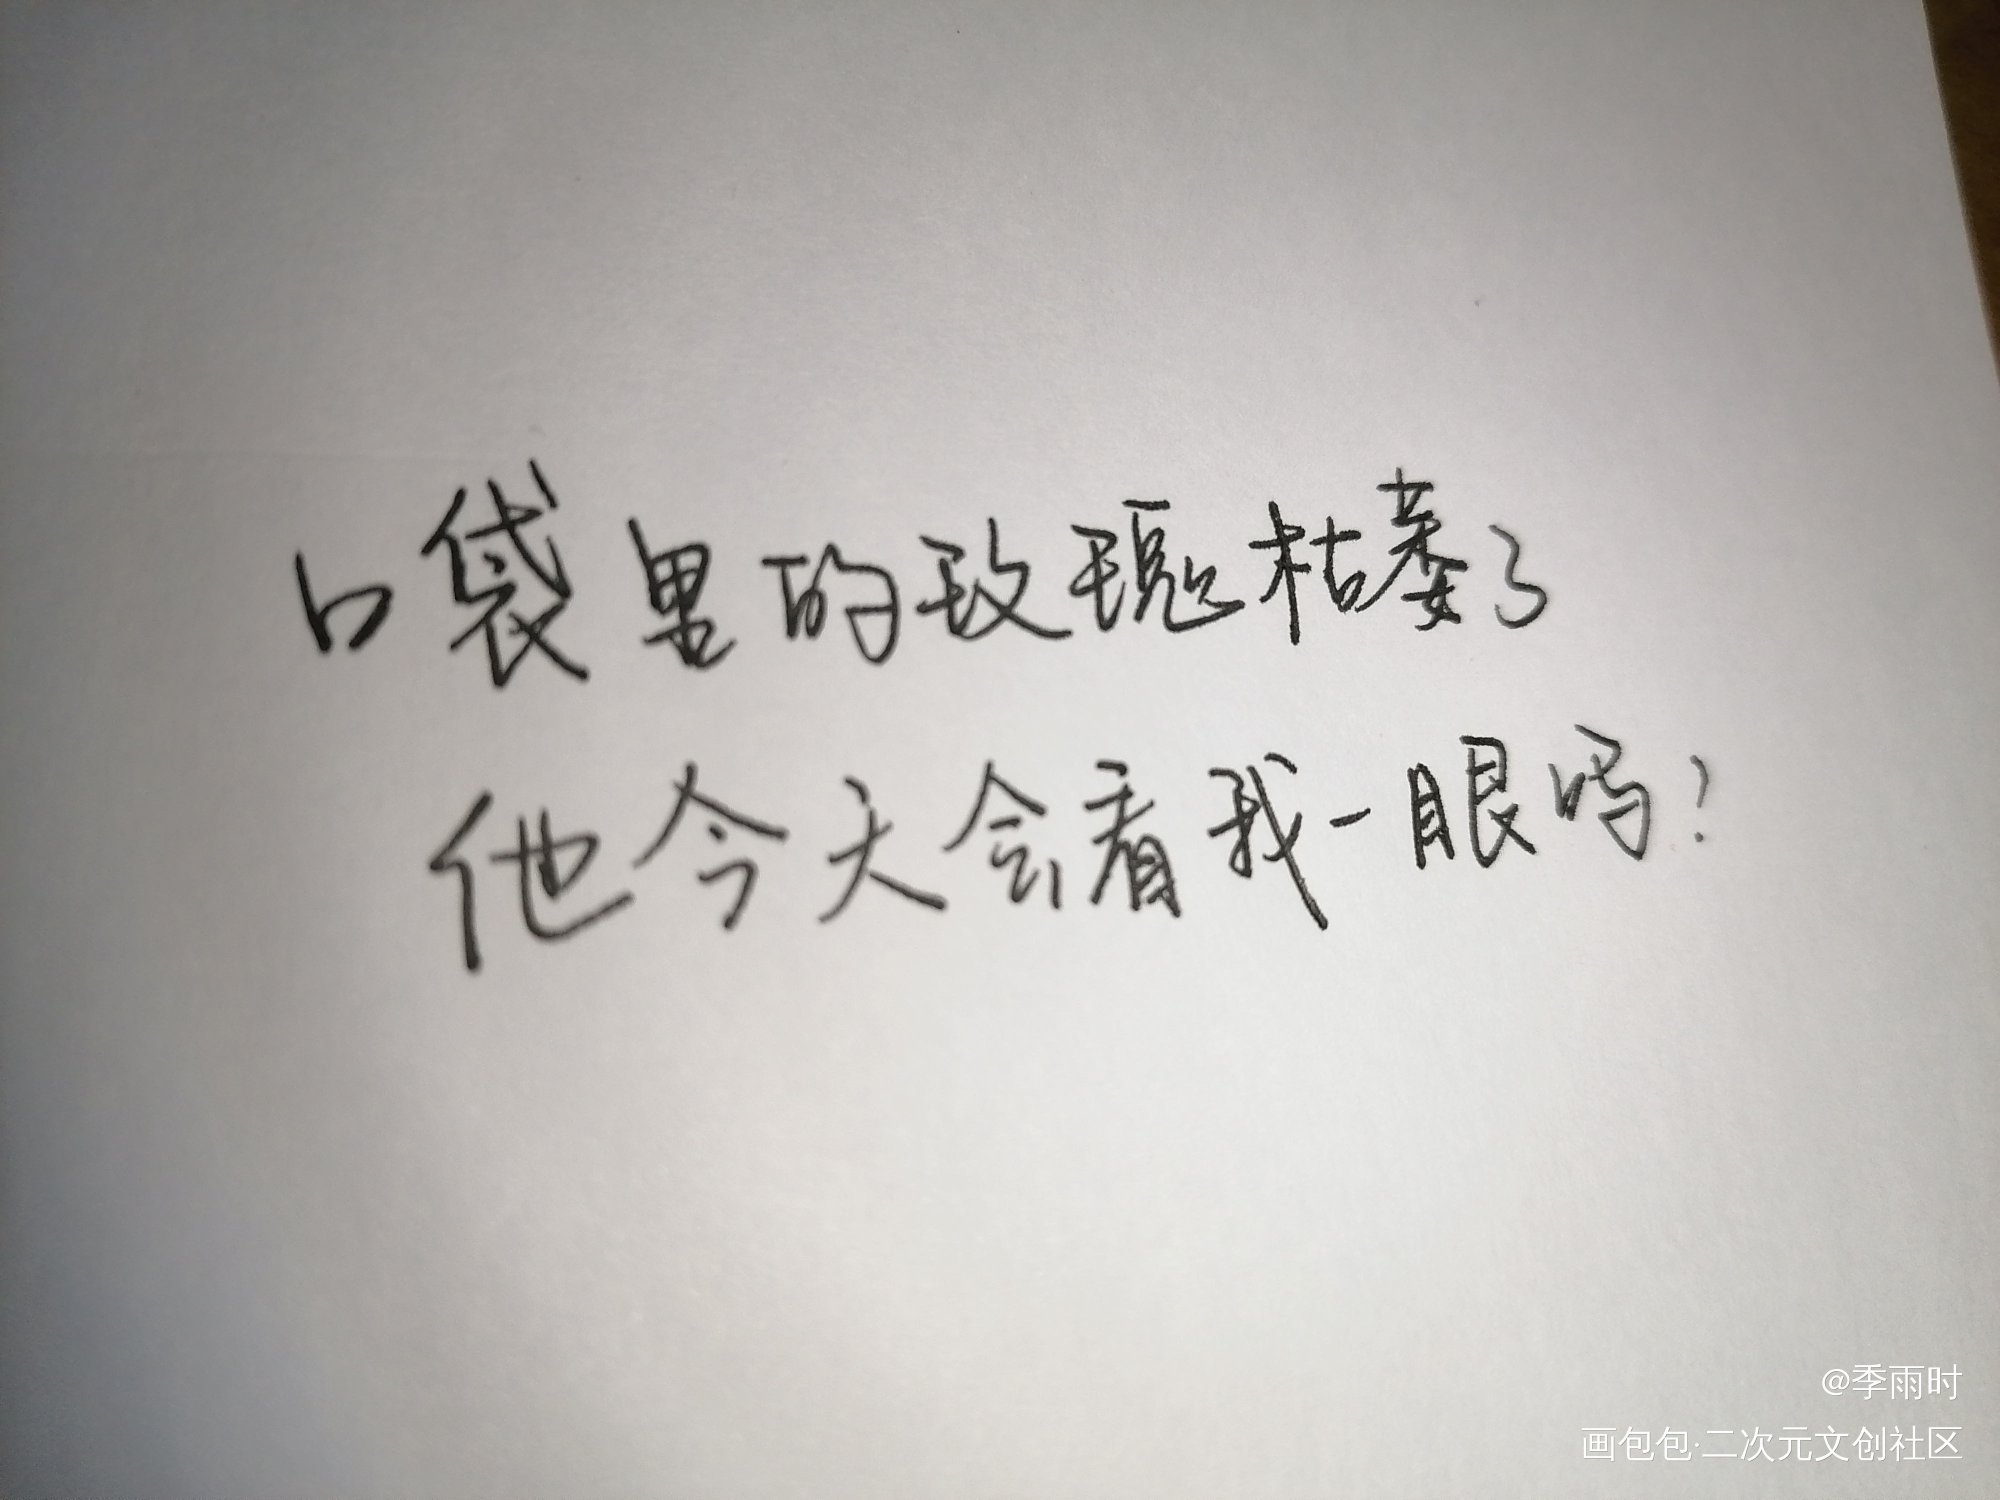 口袋里的玫瑰枯萎了
他今天会看我一眼吗?
@季雨时
画包包·二次元文创社区